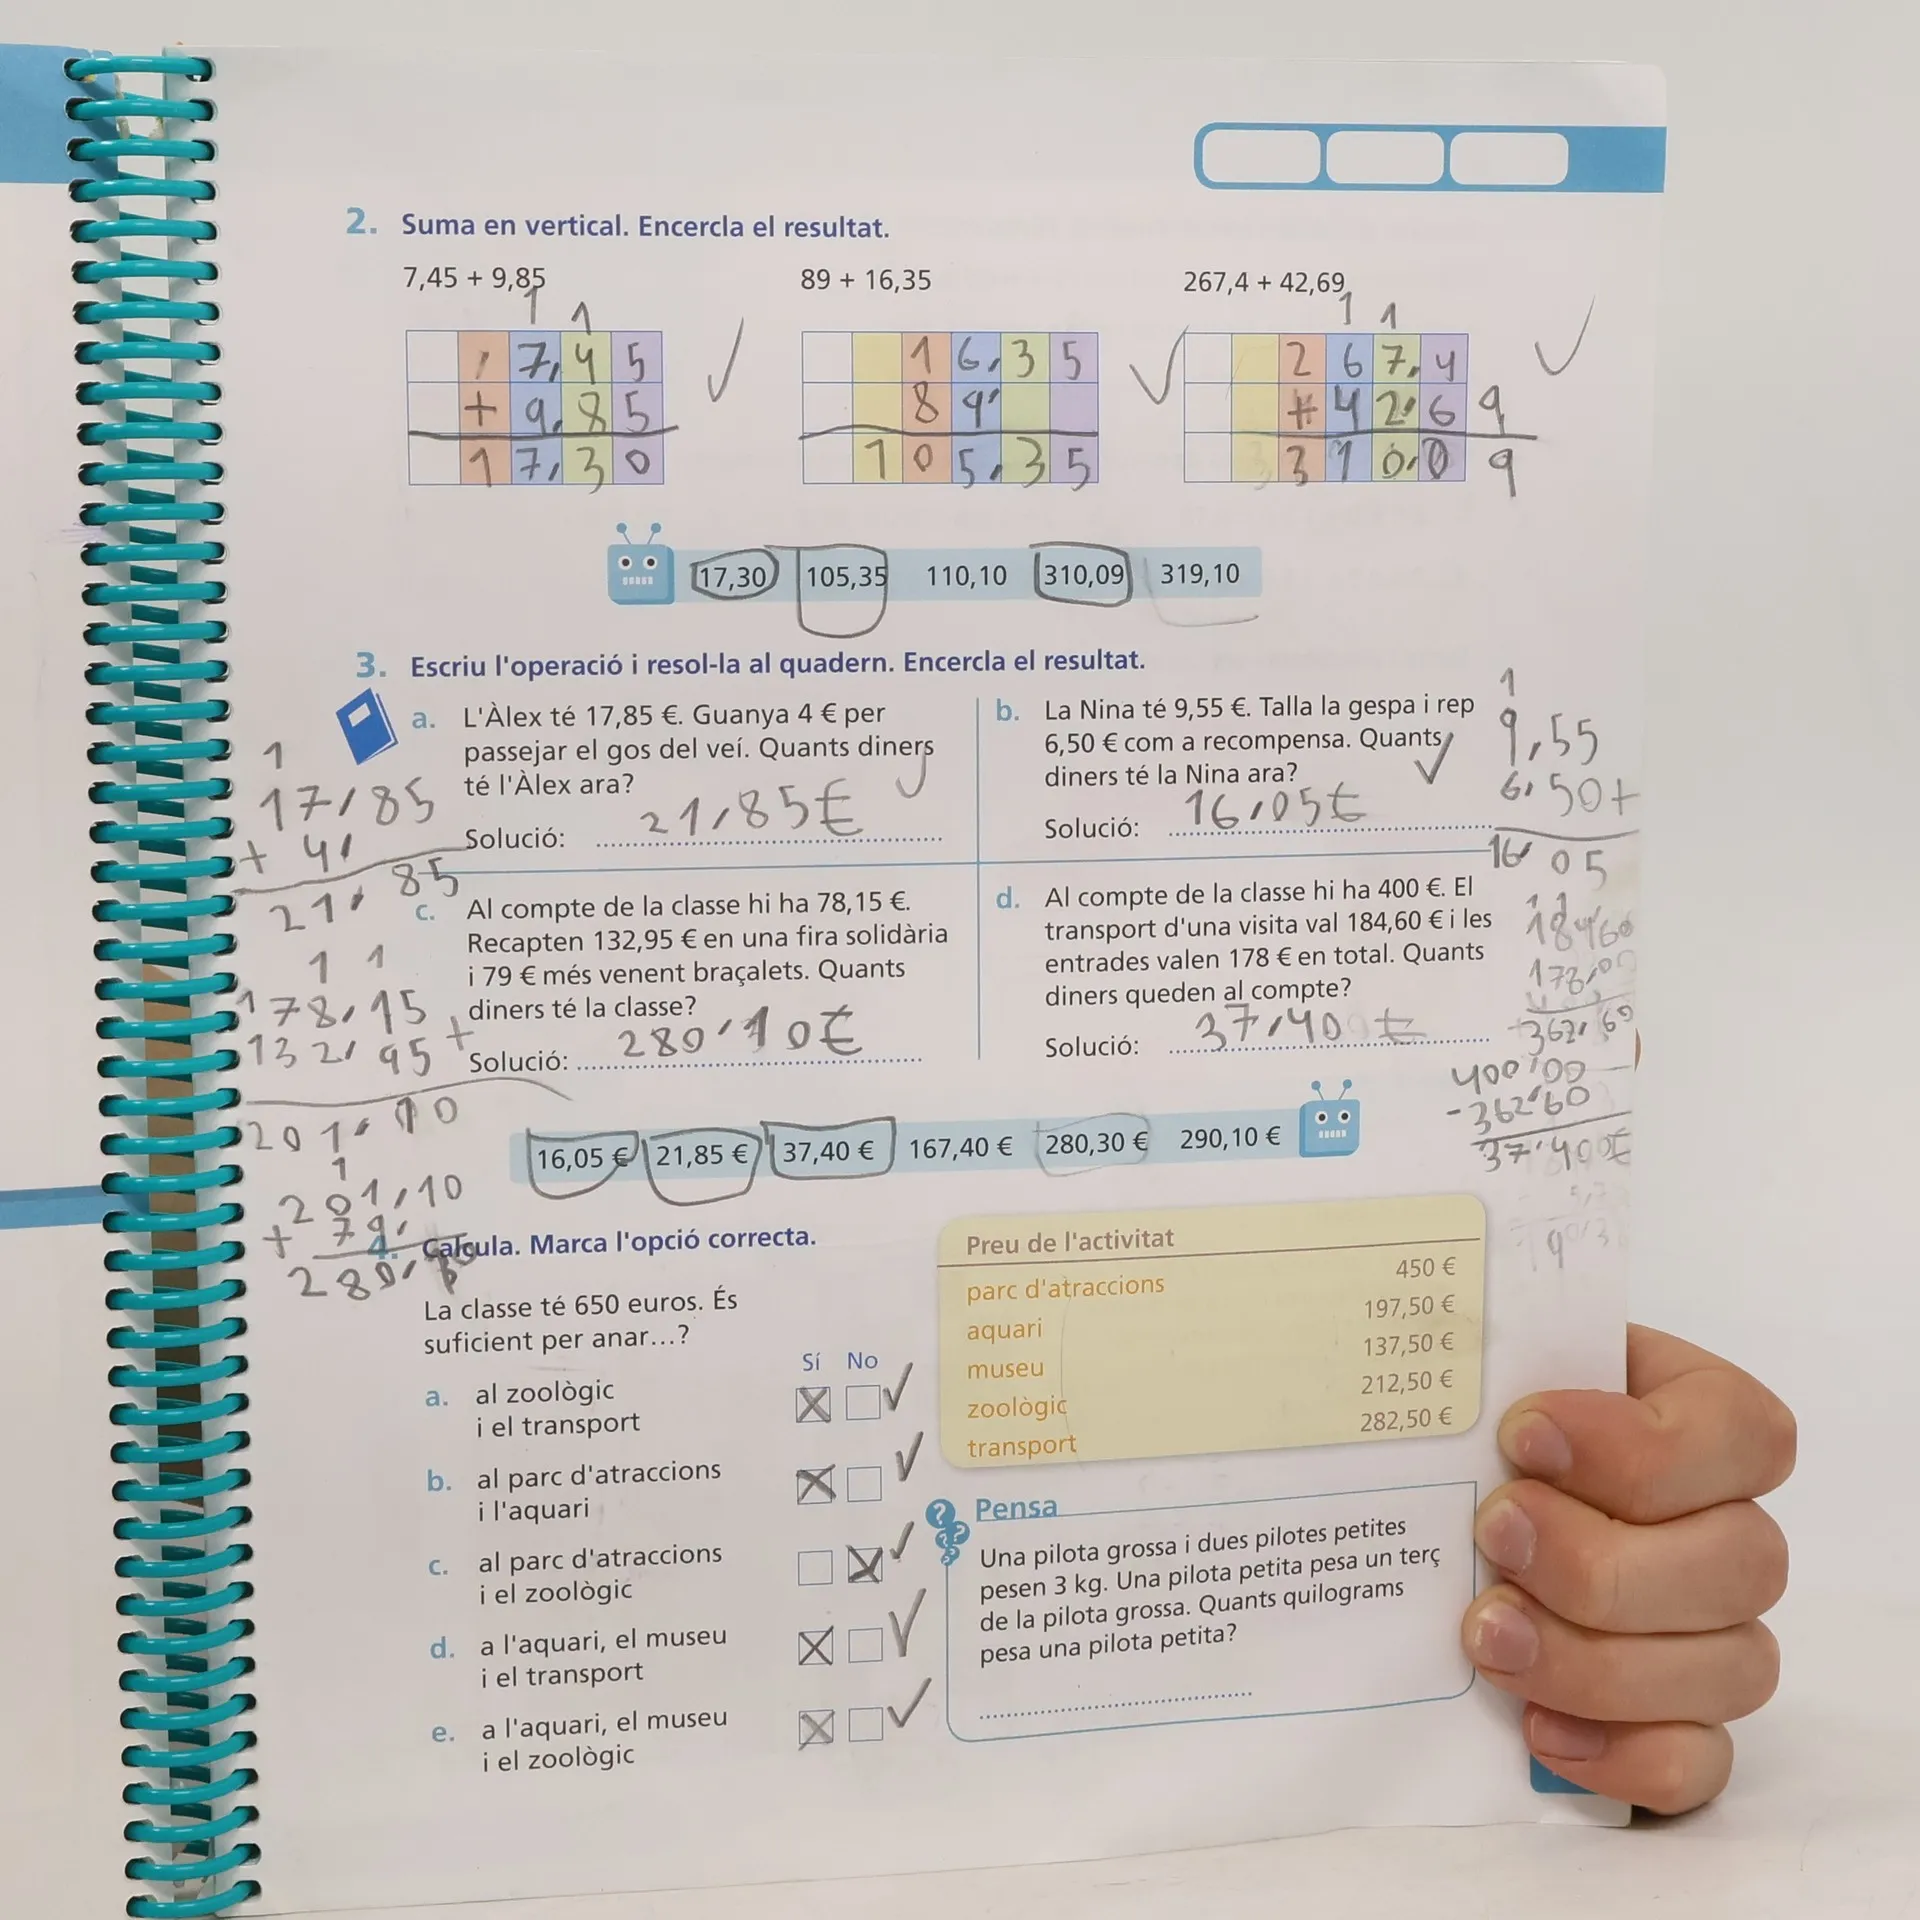 2. Suma en vertical. Encercla el resultat.
7,45 + 9,85
89 + 16,35
267,4 + 42,69
1 1
7,45
+ 9,85
17,30
16,35
89,
105,35
1 1
267,4
+ 42,69
310,09
17,30 105,35 110,10 310,09 319,10
3. Escriu l'operació i resol-la al quadern. Encercla el resultat.
a. L'Àlex té 17,85 €. Guanya 4 € per
passejar el gos del veí. Quants diners
té l'Àlex ara?
Solució: 21,85€
1
17,85
+ 4,
21,85
b. La Nina té 9,55 €. Talla la gespa i rep
6,50 € com a recompensa. Quants
diners té la Nina ara?
Solució: 16,05€
1
9,55
6,50+
16,05
c. Al compte de la classe hi ha 78,15 €.
Recapten 132,95 € en una fira solidària
i 79 € més venent braçalets. Quants
diners té la classe?
Solució: 280,10€
1 1
178,15
132,95 +
201,10
1
201,10
+ 79,
d. Al compte de la classe hi ha 400 €. El
transport d'una visita val 184,60 € i les
entrades valen 178 € en total. Quants
diners queden al compte?
Solució: 37,40 €
1 1
184,60
178,00
362,60
400,00
- 362,60
37,40
16,05 € 21,85 € 37,40 € 167,40 € 280,30 € 290,10 €
4. Calcula. Marca l'opció correcta.
La classe té 650 euros. És
suficient per anar...?
Sí No
a. al zoològic
i el transport
b. al parc d'atraccions
i l'aquari
c. al parc d'atraccions
i el zoològic
d. a l'aquari, el museu
i el transport
e. a l'aquari, el museu
i el zoològic
Preu de l'activitat
parc d'atraccions 450 €
aquari 197,50 €
museu 137,50 €
zoològic 212,50 €
transport 282,50 €
Pensa
Una pilota grossa i dues pilotes petites
pesen 3 kg. Una pilota petita pesa un terç
de la pilota grossa. Quants quilograms
pesa una pilota petita?